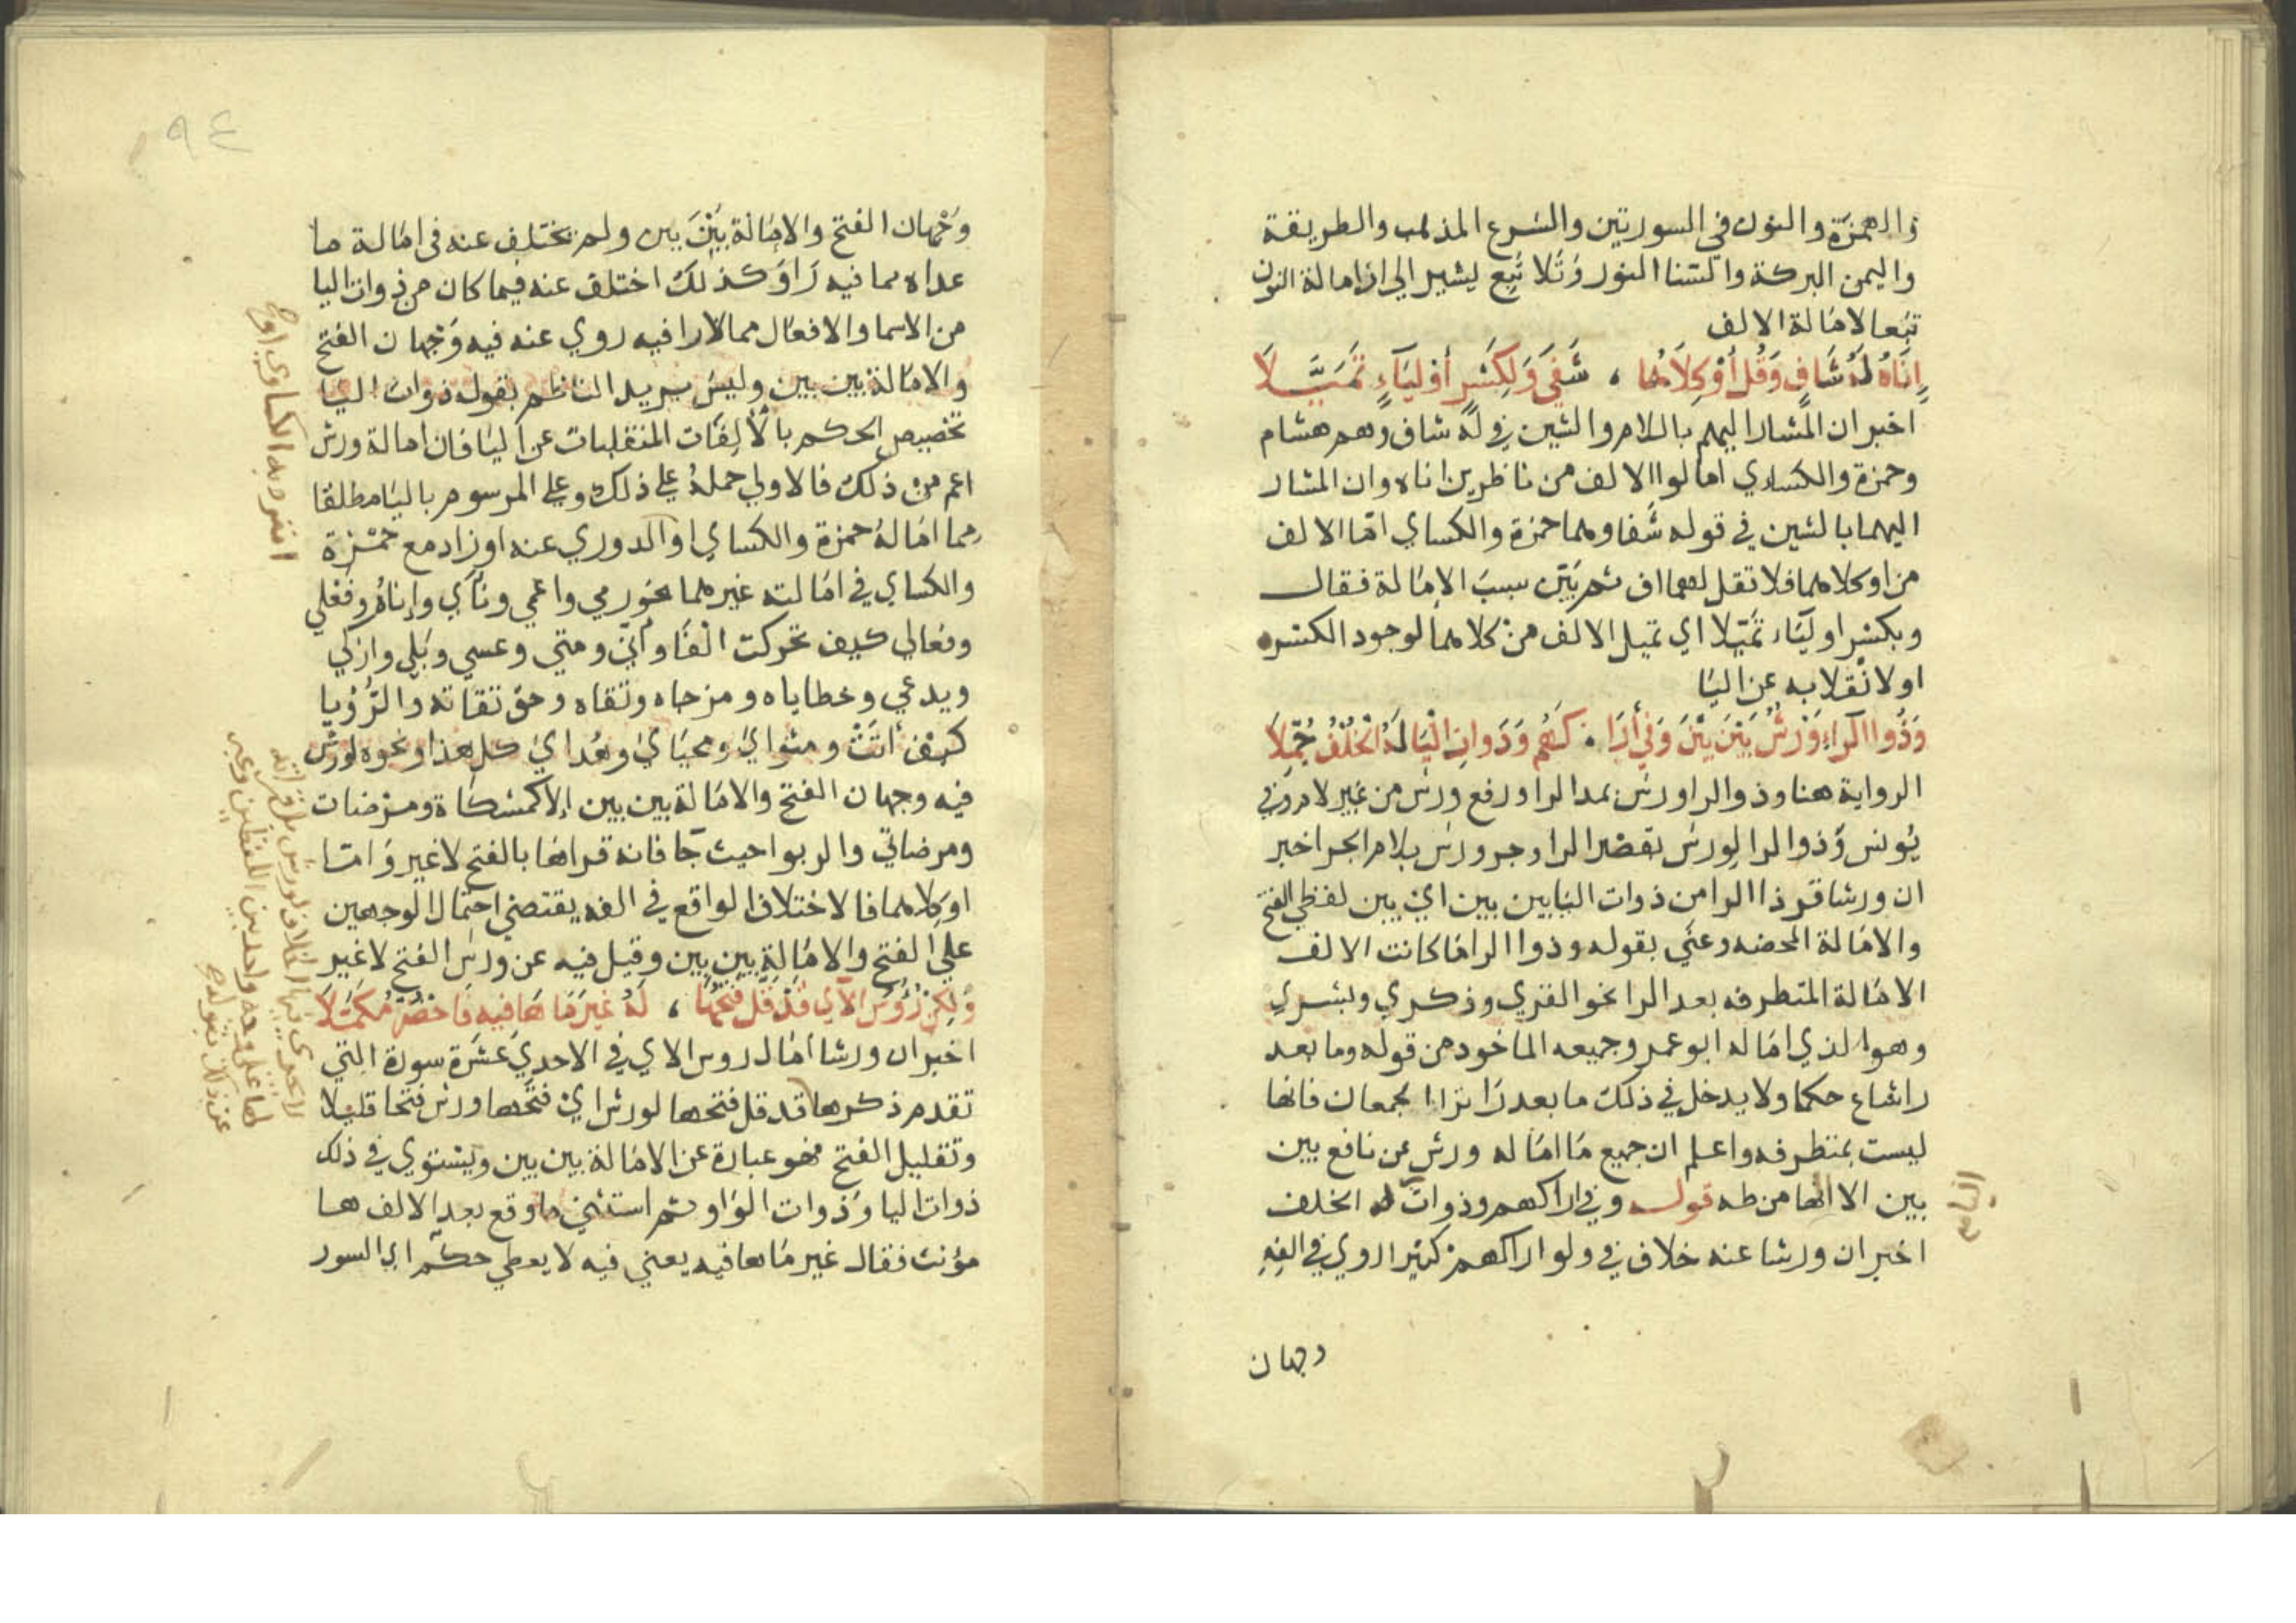 والهمزة والنون في السورتين والشرع المذهب والطريقة
واليمن البركة والسنا النور وتلا تبع يشير الي ان امالة النون
تبعا لامالة الالف
إِنَاهُ لَهُ شَافٍ وَقُلْ أَوْ كِلَاهُمَا ، شَفَى وَلِكَسْرٍ أَوْ لِيَاءٍ تَمَيَّلَا
اخبر ان المشار اليهم باللام والشين في له شاف وهم هشام
وحمزة والكساي امالوا الالف من ناظرين اناه وان المشار
اليهما بالشين في قوله شفا وهما حمزة والكساي امالا الالف
من او كلاهما فلا تقل لهما اف ثم بيّن سبب الامالة فقال
وبكسر او لياء تميلا اي تميل الالف من كلاهما لوجود الكسر
او لانقلابه عن اليا
وَذُوا الرَّاءِ وَرْشٌ بَيْنَ بَيْنَ وَفِي أَرَا . كَهُمْ وَذَوَاتِ الْيَا لَهُ الْخُلْفُ جُمِّلَا
الرواية هنا وذوالرا ورش بمد الرا ورفع ورش من غير لام وفي
يونس وذوالرا لورش بقصر الرا وجر ورش بلام الجر اخبر
ان ورشا قرا ذا الرا من ذوات اليا بين بين اي بين لفظي الفتح
والامالة المحضه وعني بقوله وذوا الرا ما كانت الالف
الامالة المتطرفه بعد الرا نحو القري وذكري وبشري
وهو الذي اماله ابو عمرو جميعه الماخود من قوله وما بعد
راشاع حكما ولا يدخل في ذلك ما بعد را تراا لجمعان فانها
ليست بمتطرفه واعلم ان جميع ما اماله ورش عن نافع بين
بين الا الها من طه قوله وفي اراكهم وذوات له الخلف
اخبر ان ورشا عنه خلاف في ولو اراكهم كثيرا روي في الفه
وجهان
وجهان الفتح والامالة بين بين ولم يختلف عنه في امالة ما
عداه مما فيه را وكذلك اختلف عنه فيما كان من ذوات اليا
من الاسما والافعال مما لا را فيه روي عنه فيه وجهان الفتح
والامالة بين بين وليس يريد الناظم بقوله ذوات اليا
تخصيص الحكم بالالفات المنقلبات عن اليا فان امالة ورش
اعم من ذلك فالاولي حمله علي ذلك وعلي المرسوم باليا مطلقا
مما اماله حمزة والكساي او الدوري عنه او زاد مع حمزة
والكساي في امالته غيرهما نحو رمي واعمي وناي وإناه وفعلي
وفعالي كيف تحركت الفا وأني ومتي وعسي وبلي وازكي
ويدعي وخطاياه ومزجاه وتقاه وحق تقاته والرؤيا
كيف أتت ومثواي ومحياي وهداي كل هذا ونحوه لورش
فيه وجهان الفتح والامالة بين بين إلا كمشكاة ومرضات
ومرضاتي والربوا حيث جا فانه قراها بالفتح لا غير واما
او كلاهما فالاختلاف الواقع في الفه يقتضي احتمال الوجهين
علي الفتح والامالة بين بين وقيل فيه عن ورش الفتح لا غير
وَلَكِنْ رُؤُسُ الْآيِ قَدْ قَلَّ فَتْحُهَا ، لَهُ غَيْرَ مَا هَا فِيهِ فَاحْضُرْ مُكَمَّلَا
اخبر ان ورشا امال روس الاي في الاحدي عشرة سورة التي
تقدم ذكرها قد قل فتحها لورش اي فتحها ورش فتحا قليلا
وتقليل الفتح هو عبارة عن الامالة بين بين ويستوي في ذلك
ذوات اليا وذوات الواو ثم استثني ما وقع بعد الالف ها
مؤنث فقال غير ما ها فيه يعني فيه لا يعطي حكم اي السور